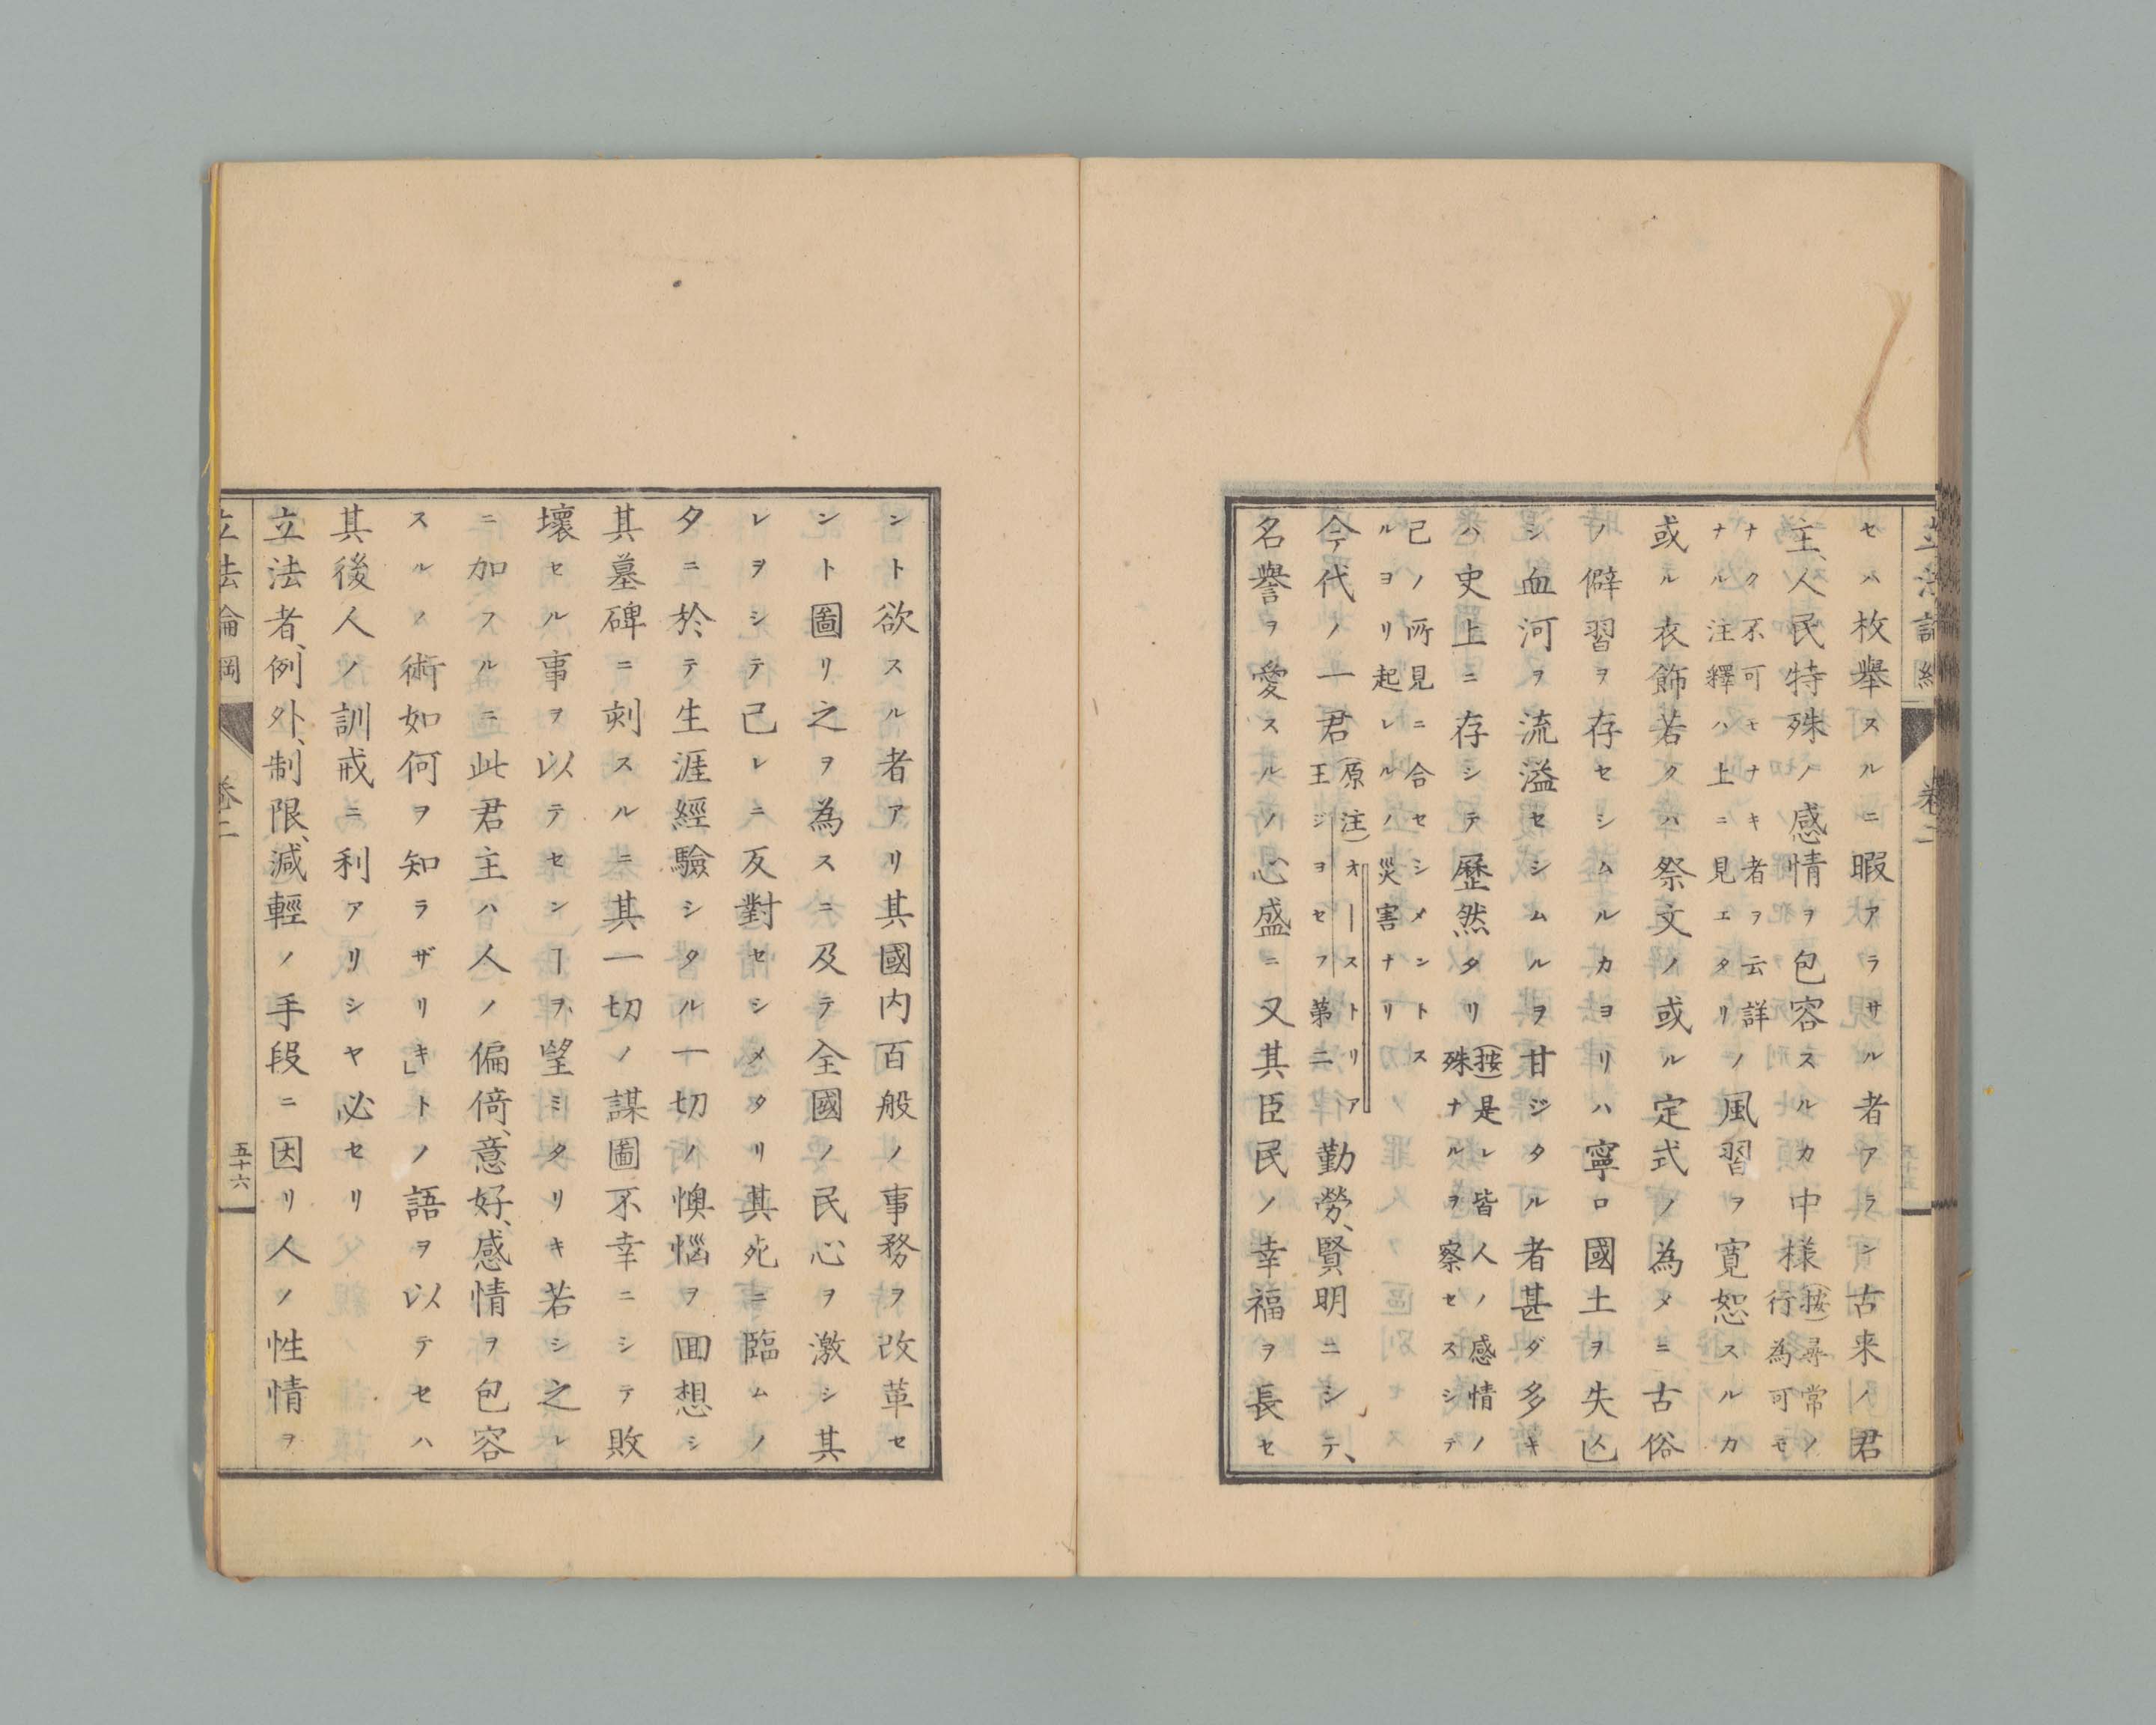 立法論綱 卷二
セハ枚舉スルニ暇アラサル者アラン古来ノ君
主、人民特殊ノ感情ヲ包容スルカ中様(按)尋常ノ行為可モ
ナク不可モナキ者ヲ云詳ナル注釋ハ上ニ見エタリノ風習ヲ寛恕スルカ
或ル衣飾若クハ祭文ノ或ル定式ノ為メニ古俗
ノ僻習ヲ存セシムルカヨリハ寧ロ國土ヲ失亾
シ血河ヲ流溢セシムルヲ甘ジタル者甚ダ多キ
ハ史上ニ存シテ歴然タリ(按)是レ皆人ノ感情ノ殊ナルヲ察セスシテ
己ノ所見ニ合セシメントスルヨリ起レルノ災害ナリ
今代ノ一君(原注)オーストリア王ジヨセフ第二勤勞、賢明ニシテ、
名譽ヲ愛スルノ心盛ニ又其臣民ノ幸福ヲ長セ
ント欲スル者アリ其國内百般ノ事務ヲ改革セ
ント圖リ之ヲ為スニ及テ全國ノ民心ヲ激シ其
レヲシテ己レニ反對セシメタリ其死ニ臨ムノ
タニ於テ生涯經驗シタル一切ノ懊惱ヲ囬想シ
其墓碑ニ刻スルニ其一切ノ謀圖不幸ニシテ敗
壞セル事ヲ以テセンヿヲ望ミタリキ若シ之レ
ニ加フルニ此君主ハ人ノ偏倚、意好、感情ヲ包容
スルノ術如何ヲ知ラザリキ」トノ語ヲ以テセハ
其後人ノ訓戒ニ利アリシヤ必セリ
立法者、例外、制限、減輕ノ手段ニ因リ人ノ性情ヲ
立法論綱 卷二 五十六